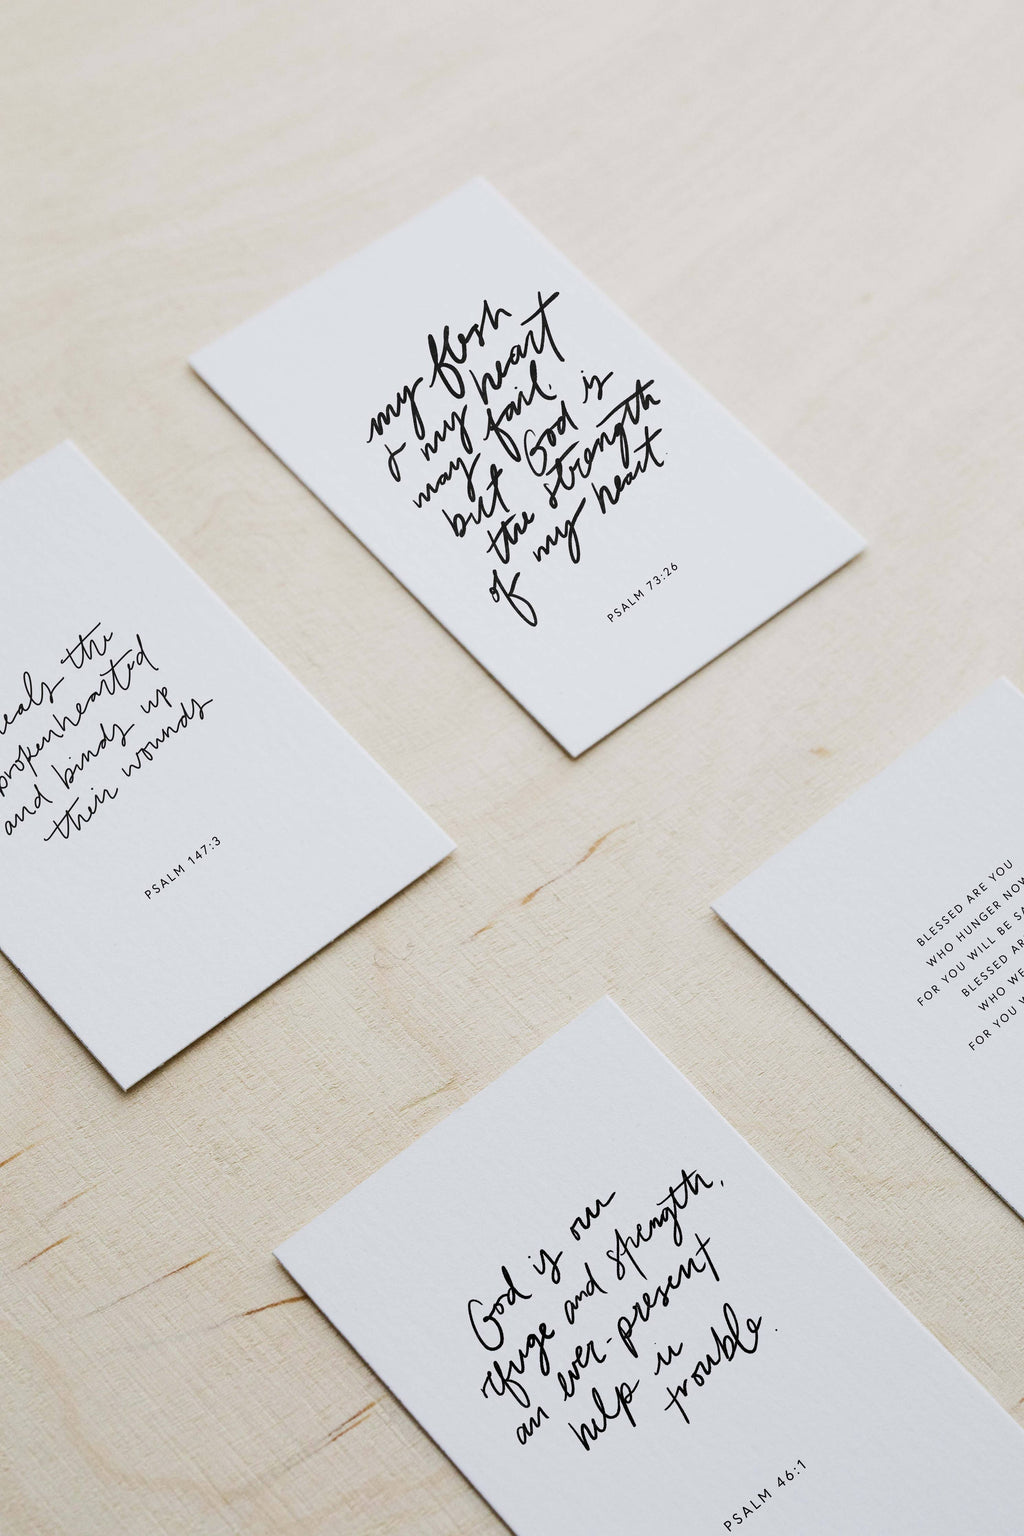 my flesh
& my heart
may fail.
but God is
the strength
of my heart.
PSALM 73:26
the
brokenhearted
and binds up
their wounds
PSALM 147:3
BLESSED ARE YOU
WHO HUNGER NOW
FOR YOU WILL BE
BLESSED
WHO
FOR YOU
God is our
refuge and strength,
an ever-present
help in
trouble.
PSALM 46:1